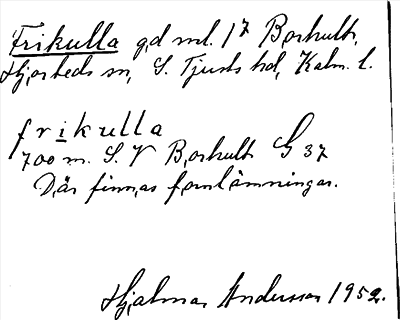 Frikulla gd ml. 17 Borhult,
Hjorteds sn, S. Tjusts hd, Kalm. l.
frikulla
700 m. S. V Borhult G 37
Där finnas fornlämningar.
Hjalmar Andersson 1952.